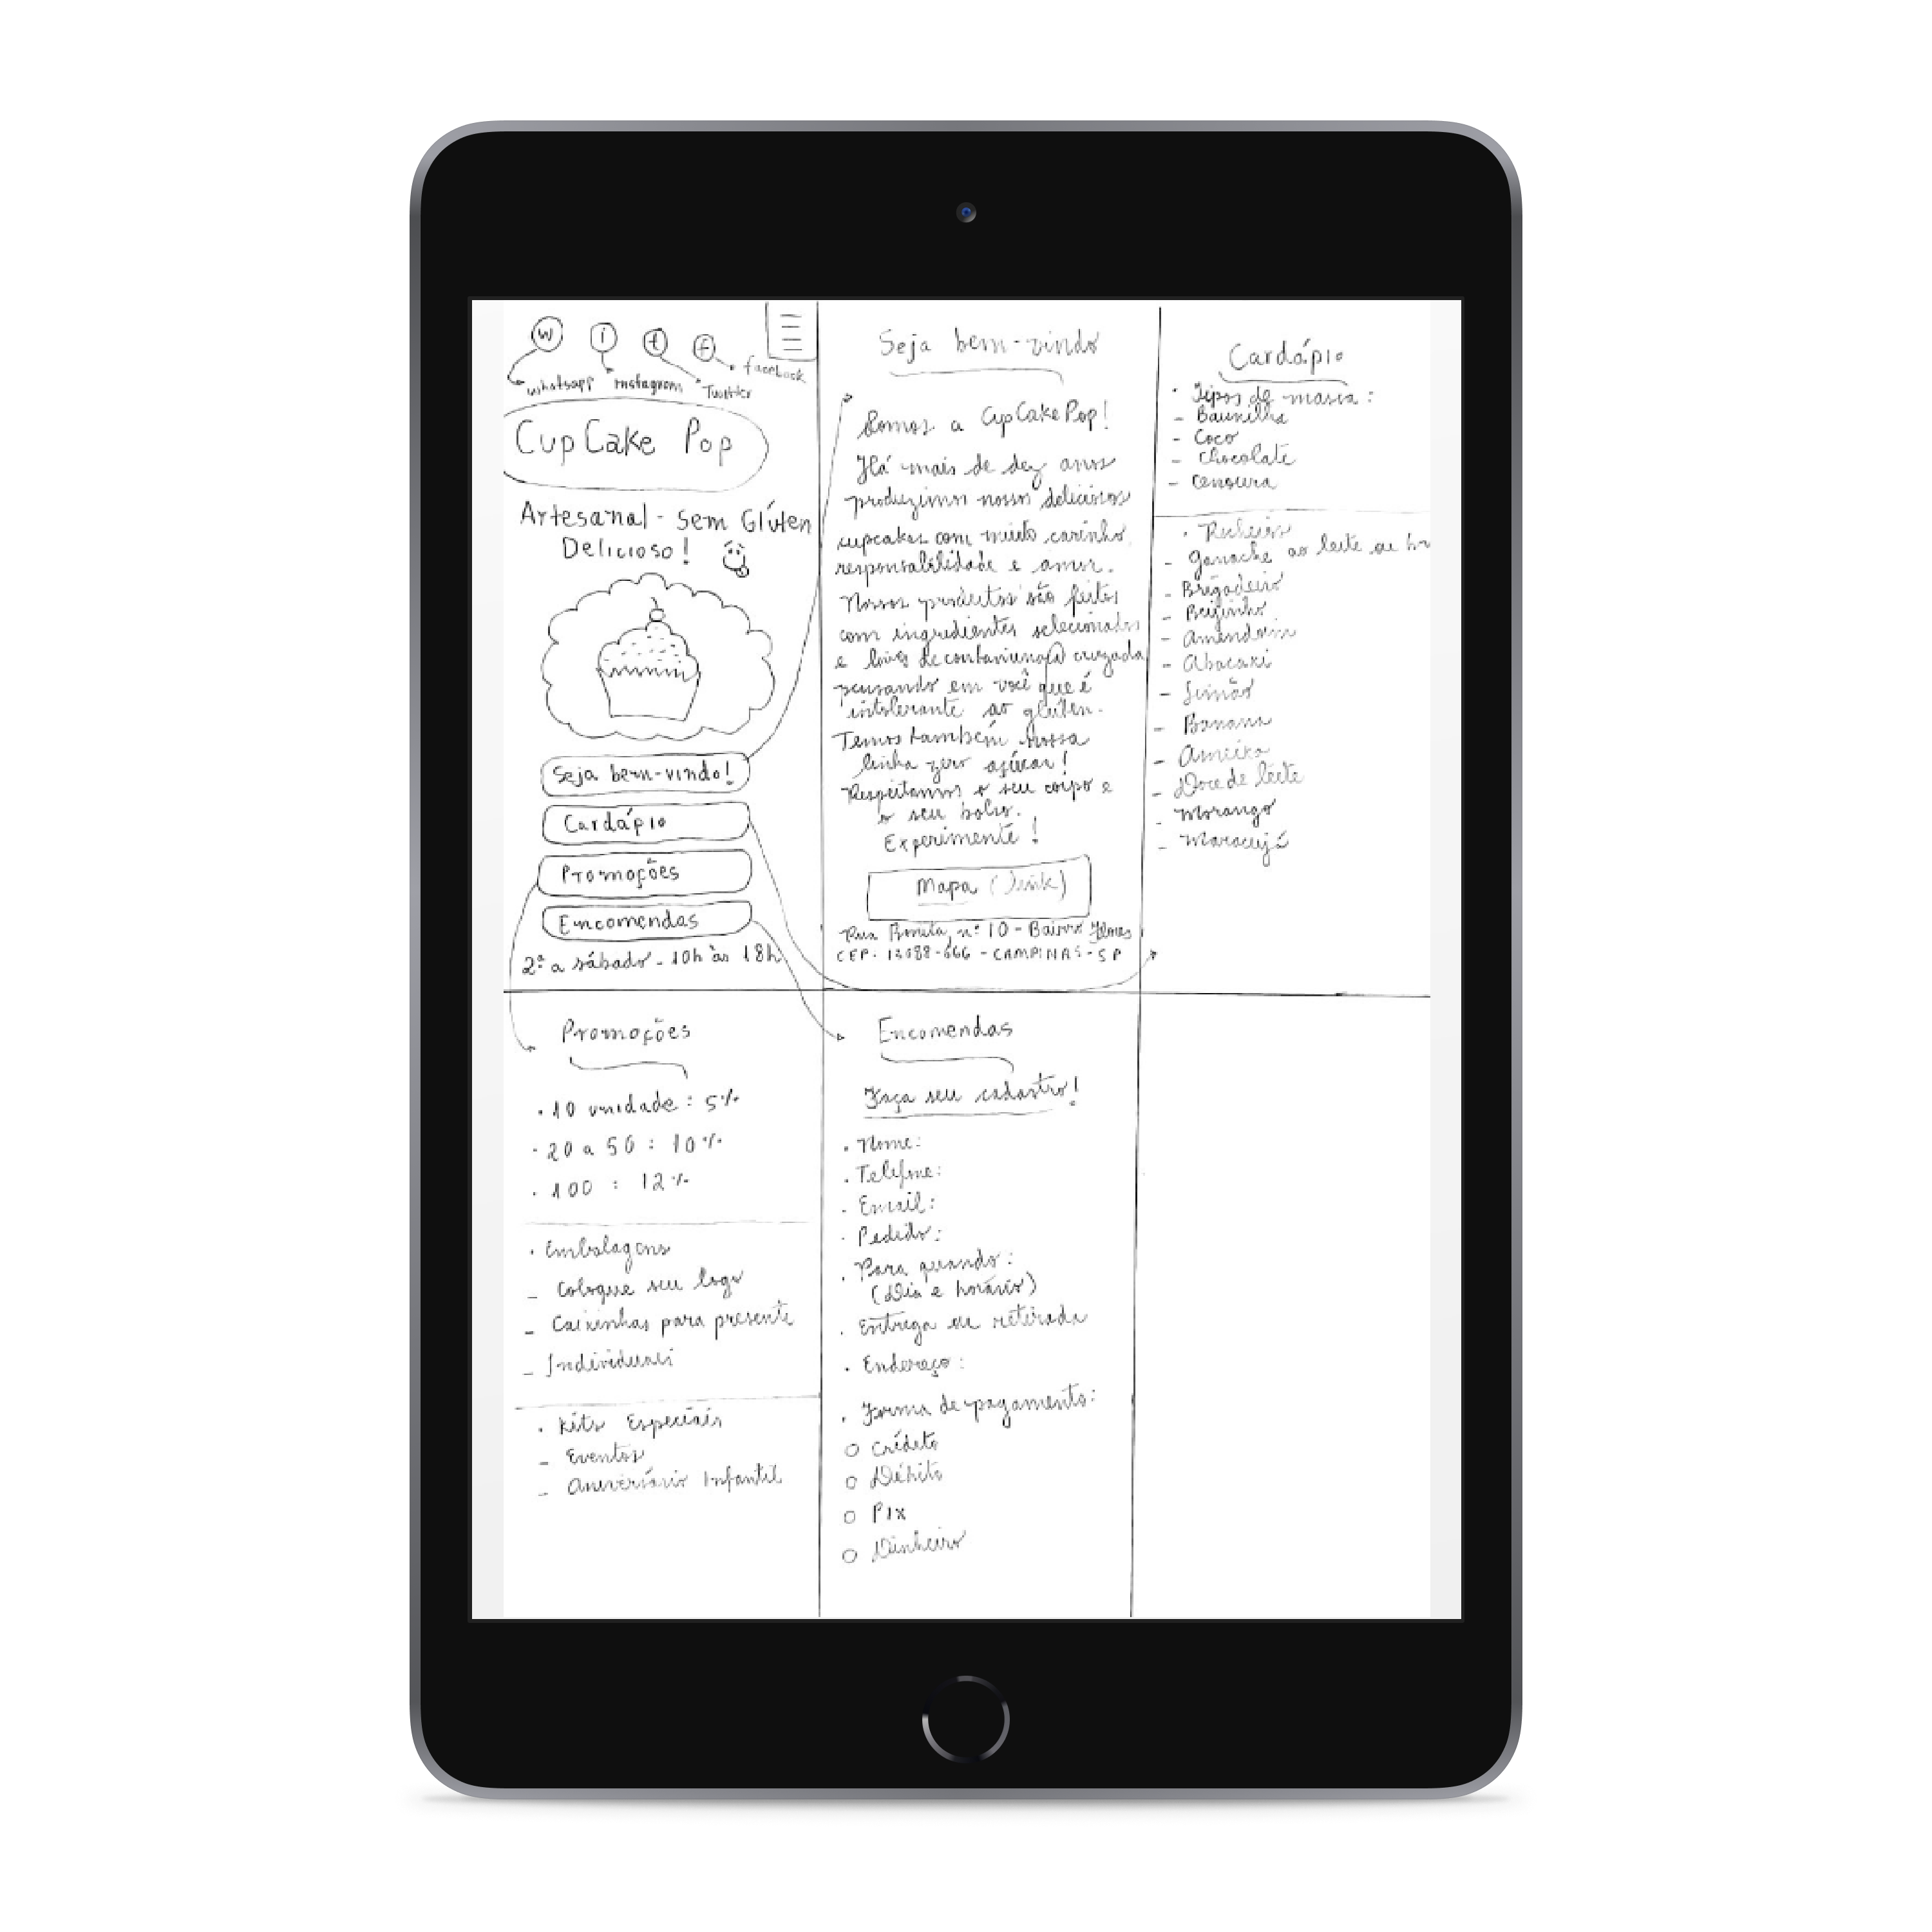 W i t f
whatsapp Instagram Twitter facebook
CupCake Pop
Artesanal - Sem Glúten
Delicioso!
Seja bem-vindo!
Cardápio
Promoções
Encomendas
2ª a sábado - 10h às 18h
Seja bem-vindo
Somos a CupCakePop!
Há mais de dez anos
produzimos nossos deliciosos
cupcakes com muito carinho,
responsabilidade e amor.
Nossos produtos são feitos
com ingredientes selecionados
e livres de contaminação cruzada
pensando em você que é
intolerante ao glúten.
Temos também nossa
linha zero açúcar!
Respeitamos o seu corpo e
o seu bolso.
Experimente!
Mapa (Link)
Rua Bonita, nº 10 - Bairro Flores
CEP. 13088-666 - CAMPINAS - SP
Cardápio
• Tipos de massa:
- Baunilha
- Coco
- Chocolate
- Cenoura
• Recheios
- Ganache ao leite ou
- Brigadeiro
- Beijinho
- Amendoim
- Abacaxi
- Limão
- Banana
- Ameixa
- Doce de leite
- Morango
- Maracujá
Promoções
• 10 unidade: 5%
• 20 a 50: 10%
• 100: 12%
• Embalagens
- Coloque seu logo
- Caixinhas para presente
- Individuais
• Kits Especiais
- Eventos
- Aniversário Infantil
Encomendas
Faça seu cadastro!
• Nome:
• Telefone:
• Email:
• Pedido:
• Para quando:
(Dia e horário)
• Entrega ou retirada
• Endereço:
• Forma de pagamento:
○ Crédito
○ Débito
○ Pix
○ Dinheiro